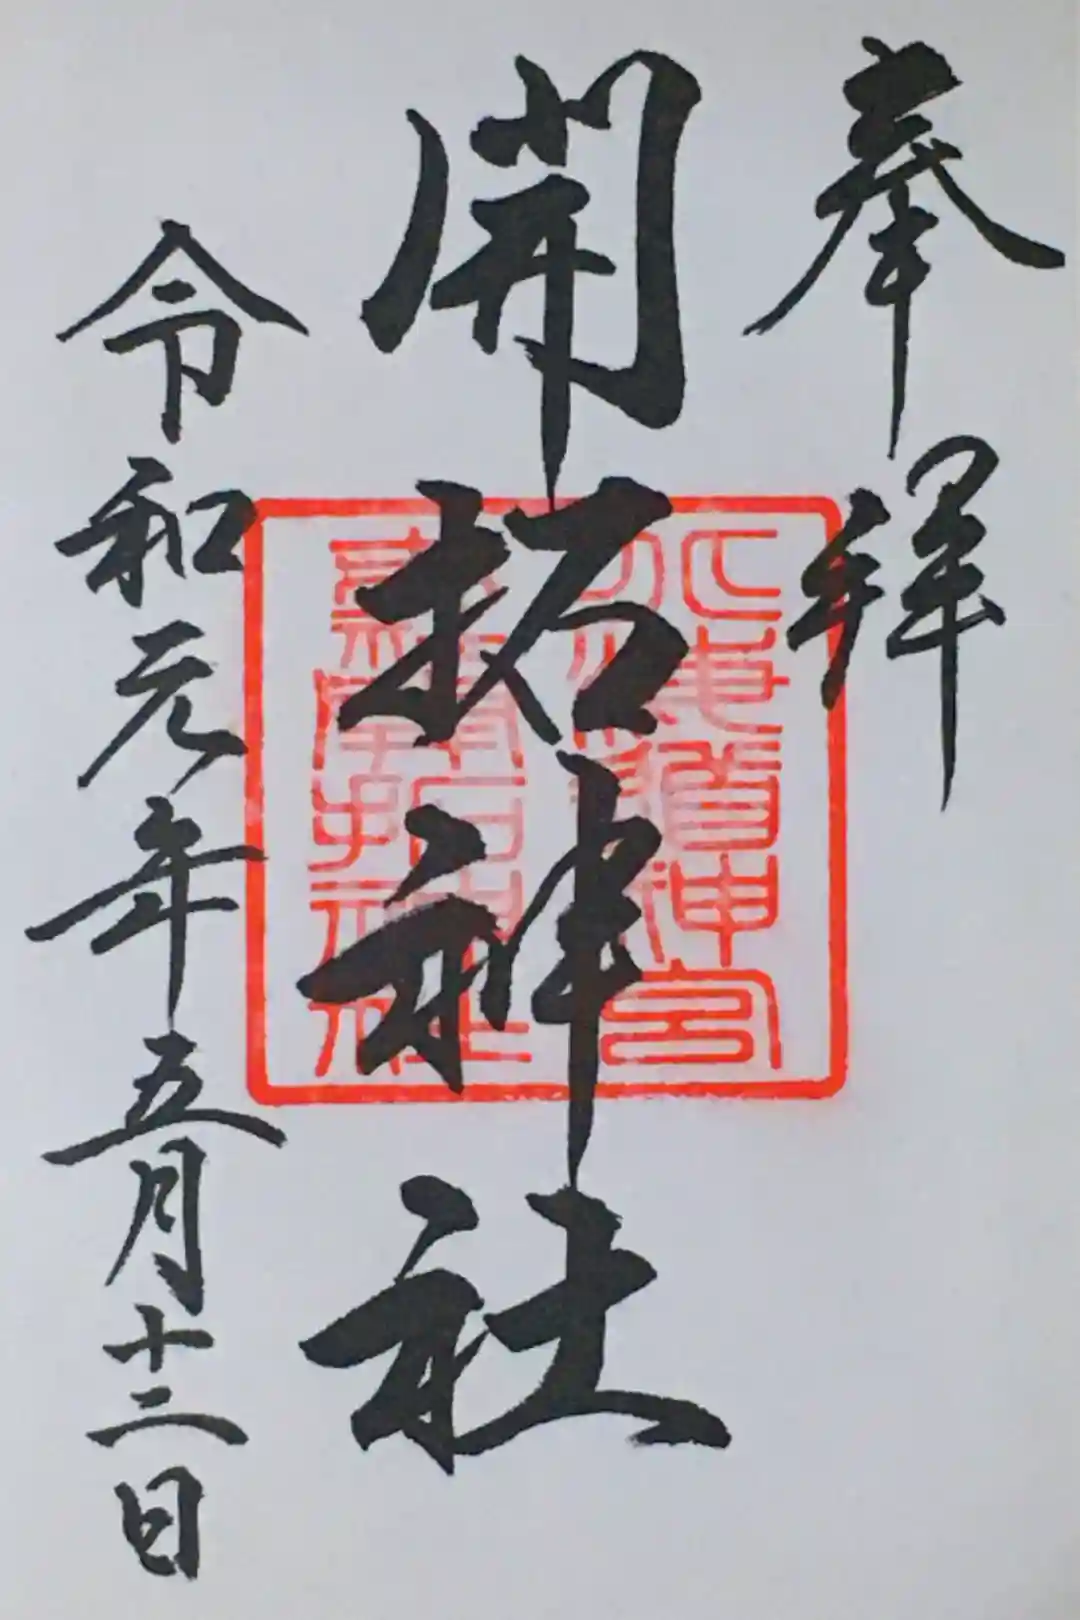 奉拝
開拓神社
令和元年五月十二日
北海道神宮
末社開拓神社